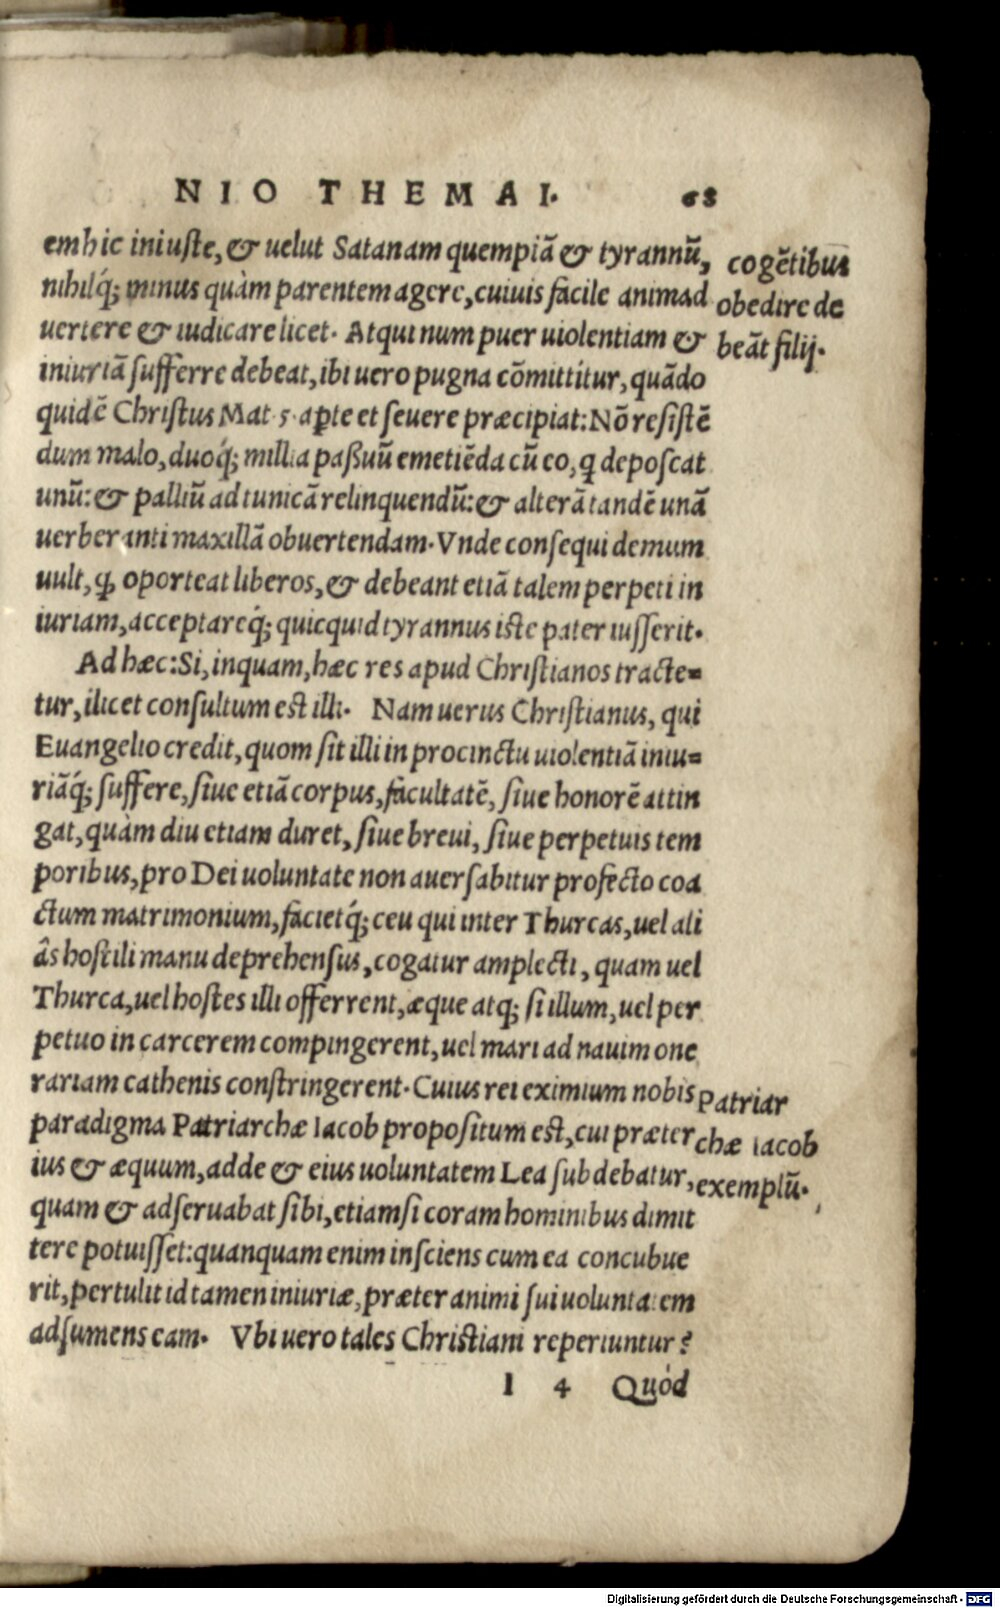 NIO THEMA I. 68
em hic iniuste, & uelut Satanam quempiã & tyrannũ,
nihilq́; minus quàm parentem agere, cuiuis facile animad
uertere & iudicare licet. Atqui num puer uiolentiam &
iniuriã sufferre debeat, ibi uero pugna cõmittitur, quãdo
quidẽ Christus Mat. 5. aꝑte et seuere præcipiat: Nõ resistẽ
dum malo, duoq́; millia paßuũ emetiẽda cũ eo, ꝗ deposcat
unũ: & palliũ ad tunicã relinquendũ: & alterã tandẽ unã
uerberanti maxillã obuertendam. Vnde consequi demum
uult, ꝙ oporteat liberos, & debeant etiã talem perpeti in
iuriam, acceptareq́; quicquid tyrannus iste pater iusserit.
Ad hæc: Si, inquam, hæc res apud Christianos tracte=
tur, ilicet consultum est illi. Nam uerus Christianus, qui
Euangelio credit, quom sit illi in procinctu uiolentiã iniu=
riãq́; suffere, siue etiã corpus, facultatẽ, siue honorẽ attin
gat, quàm diu etiam duret, siue breui, siue perpetuis tem
poribus, pro Dei uoluntate non auersabitur profecto coa
ctum matrimonium, facietq́; ceu qui inter Thurcas, uel ali
âs hostili manu deprehensus, cogatur amplecti, quam uel
Thurca, uel hostes illi offerrent, æque atq; si illum, uel per
petuo in carcerem compingerent, uel mari ad nauim one
rariam cathenis constringerent. Cuius rei eximium nobis
paradigma Patriarchæ Iacob propositum est, cui præter
ius & æquum, adde & eius uoluntatem Lea subdebatur,
quam & adseruabat sibi, etiamsi coram hominibus dimit
tere potuisset: quanquam enim insciens cum ea concubue
rit, pertulit id tamen iniuriæ, præter animi sui uoluntatem
adsumens eam. Vbi uero tales Christiani reperiuntur?
I 4 Quód
cogẽtibus
obedire de
beãt filij.
Patriar
chæ Iacob
exemplũ.
Digitalisierung gefördert durch die Deutsche Forschungsgemeinschaft - DFG